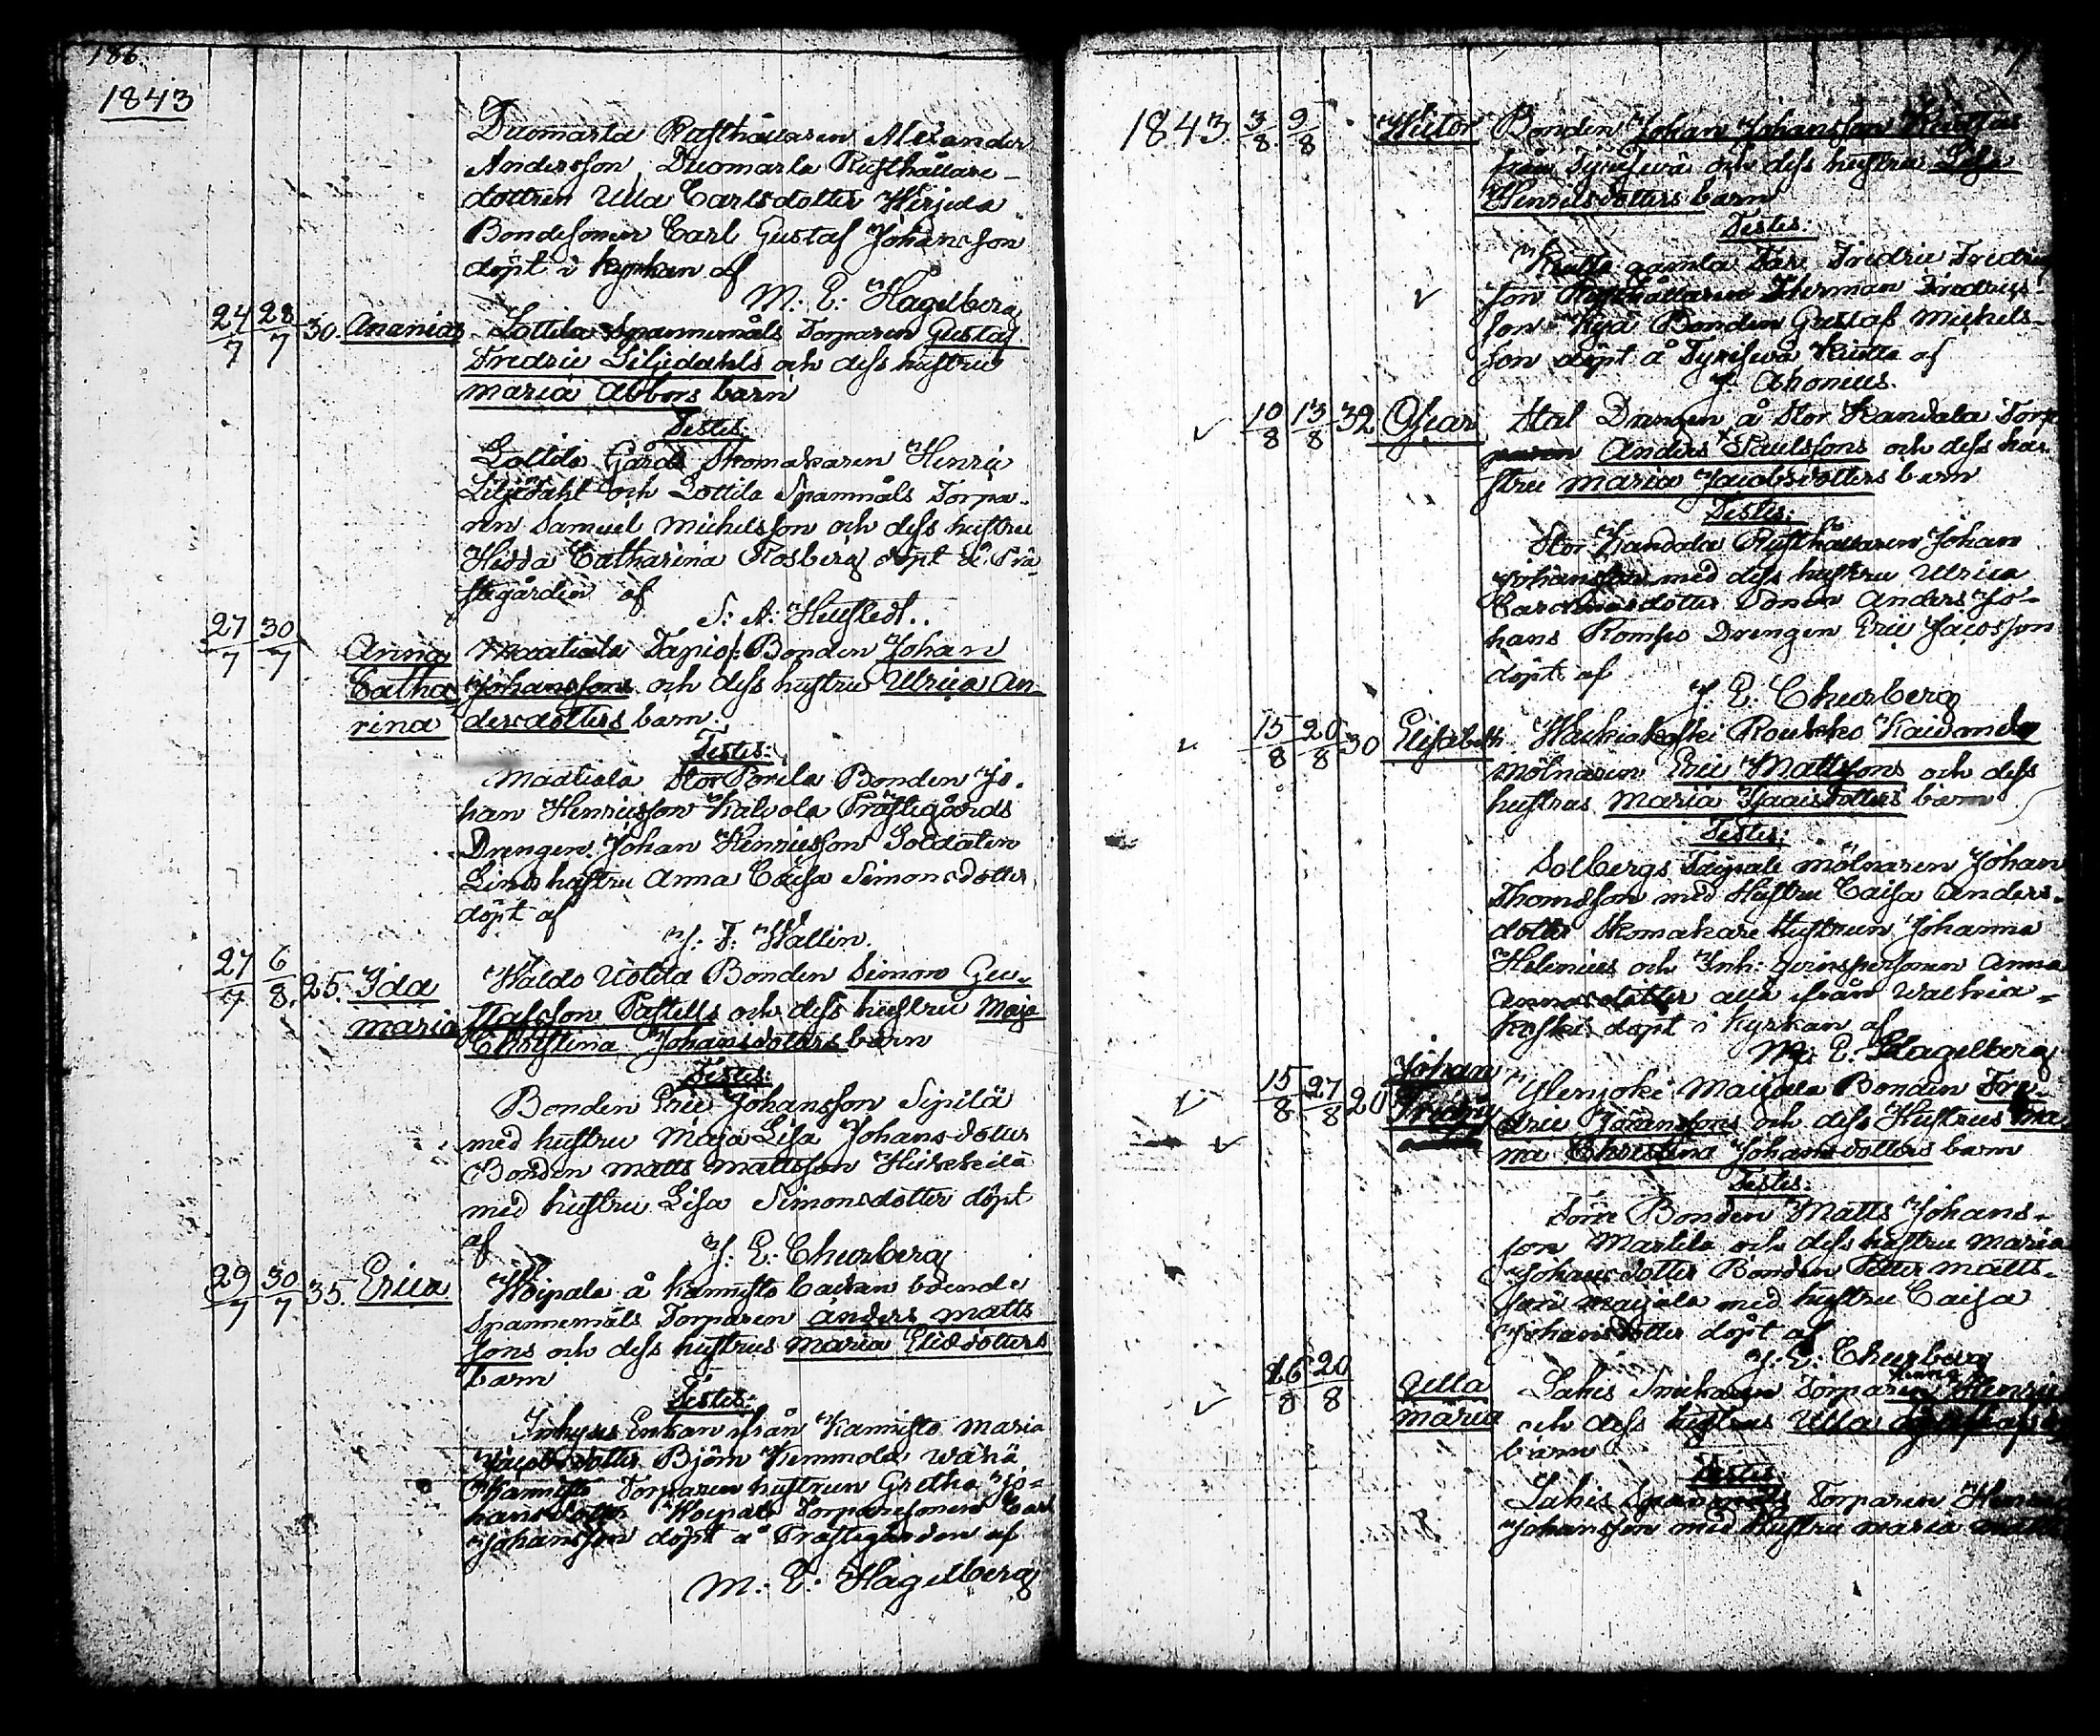 186.
1843
Duomarla Rusthållaren Alexander
Andersson, Duomarla Rusthållare-
dottren Ulla Carlsdotter Wirjeda
Bondesonen Carl Gustaf Johansson
döpt i Kyrkan af
M: E: Hagelberg
24/7 28/7 30. Ananias Lottila Spannemåls Torparen Gustaf
Fredric Liljedahls och dess hustrus
Maria Abbors barn
Testes:
Lottila Gårds Skomakaren Henric
Liljedahl och Lottila Spanmåls Torpa-
ren Samuel Michelsson och dess hustru
Hedda Catharina Flosberg döpt å Prä
stegården af
S: A: Heustedt..
27/7 30/7 Anna Maatiala Tapio: Bonden Johan
Catha Johanssons och dess hustru Ulrica An
rina dersdotters barn.
Testes:
Maatiala Stor Bonden Jo-
han Henricsson Kalvola Prästegårds
Drengen Johan Henricsson Soldaten
Linds hustru Anna Caisa Simonsdotter
döpt af
J: F: Wallin.
27/7 6/8. 25. Ida Waldo Uotila Bonden Simon Gu-
Maria stafsson Pastells och dess hustru Maja
Christina Johansdotters barn
Testes:
Bonden Eric Johansson Sipilä
med hustru Maja Lisa Johansdotter
Bonden Matts Mattsson Heikkilä
med hustru Lisa Simonsdotter döpt
af J: E: Churberg
29/7 30/7 35. Erica Woipala å Kannisto backan boende
Spannemåls Torparen Anders Matts
sons och dess hustrus Maria Elisdotters
barn
Testes:
Inhyses Enkan ifrån Kannisto Maria
Jacobsdotter Björn Kemmola Wähä
Kannisto Torparen hustrun Gretha Jo-
hansdotter Woipala Torparesonen Carl
Johansson döpt å Prästegården af
M: E: Hagelberg
1843 3/8 9/8 Victor Bonden Johan Johansson
från och dess hustru Lisa
Henricsdotters barn
Testes:
gamla Far Fredric Fredrics
son Rusthållaren Herman Fredrics-
son Kyrö Bonden Gustaf Michels-
son döpt å af
J. Ahonius.
10/8 13/8 32 Oscar Stal Drengen å Stor Kandala Torp
Anders Paulssons och dess hu
stru Maria Jacobsdotters barn
Testes:
Stor Kandala Rusthållaren Johan
Johansson med dess hustru Ulrica
Sonen Anders Jo-
hans Drengen Eric Jacobsson
döpt af
J. E: Churberg
15/8 20/8 30 Elisabeth Wachiakoski Roukko
Mölnaren Eric Mattssons och dess
hustrus Maria Isaacsdotters barn
Testes:
Solbergs Taipale Mölnaren Johan
Thomasson med Hustru Caisa Anders-
dotter Skomakare Hustrun Johanna
Helenius och Inh: qvinspersonen Anna
Annasdotter alla ifrån Wachia-
koski döpt i Kyrkan af
M. E. Hagelberg
15/8 27/8 20 Johan Ylenjoki Maijala Bonden Fre-
Fredric dric Johanssons och dess Hustrus Ma
ria Christina Johansdotters barn
Testes:
Bonden Matts Johans-
son Martila och dess hustru Maria
Johansdotter Bonden Petter Matts-
son Maijala med hustru Caisa
Johansdotter döpt af
J: E: Churberg
16/8 20/8 Ulla Lahis Torparen Henric
Maria och dess hustrus Ulla
barn
Testes
Lahis Spanmåls Torparen
Johansson med Hustru Maria